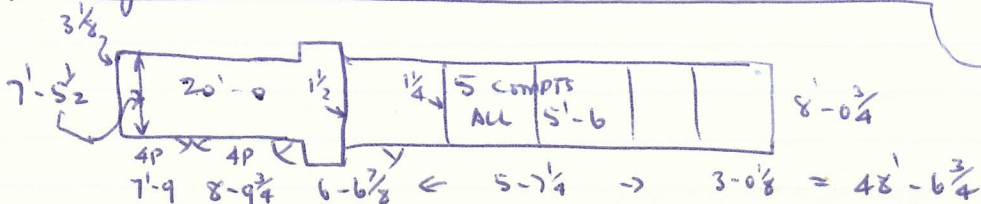 3⅛
7'-5½ 20'-0 1½ 1¼ 5 COMPTS
ALL 5'-6 8'-0¾
4P 4P
7'-9 8-9¾ 6-6⅞ ← 5-7¼ → 3-0⅛ = 48'-6¾